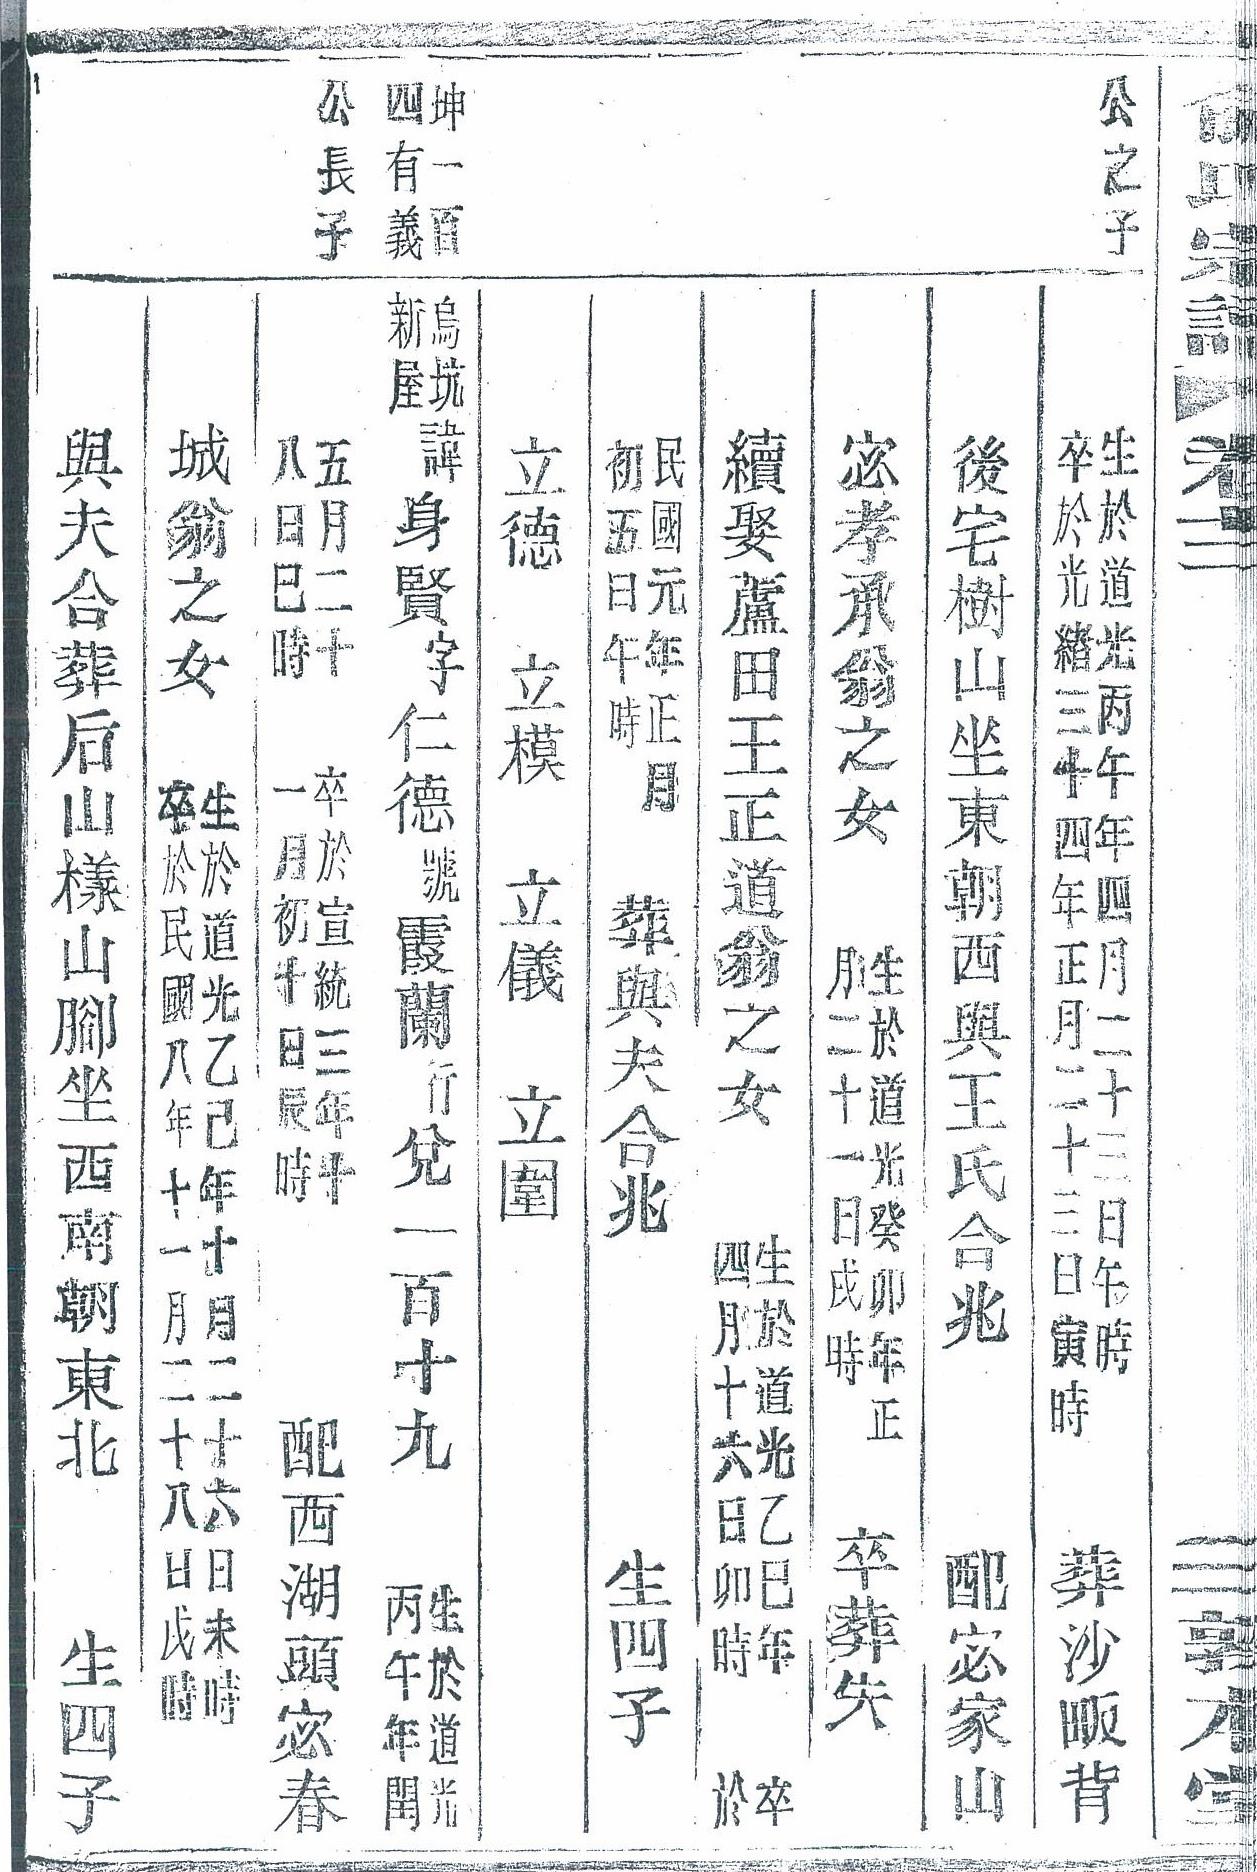 氏宗譜 卷二 三 敦本堂
公之子
生於道光丙午年四月二十三日午時
卒於光緒三十四年正月二十三日寅時
葬沙畈背
後宅樹山坐東朝西與王氏合兆 配宓家山
宓孝承翁之女 生於道光癸卯年正
月二十一日戌時 卒葬失
續娶蘆田王正道翁之女 生於道光乙巳年
四月十六日卯時 卒
於
民國元年正月
初五日午時 葬與夫合兆 生四子
立德 立模 立儀 立圍
坤一百
四有義
烏坑
新屋
諱身賢字仁德號霞蘭行兌一百十九 生於道光
丙午年閏
公長子
五月二十
八日巳時 卒於宣統三年十
一月初十日辰時 配西湖頭宓春
城翁之女 生於道光乙巳年十月二十六日未時
卒於民國八年十一月二十八日戌時
與夫合葬后山樣山腳坐西南朝東北 生四子